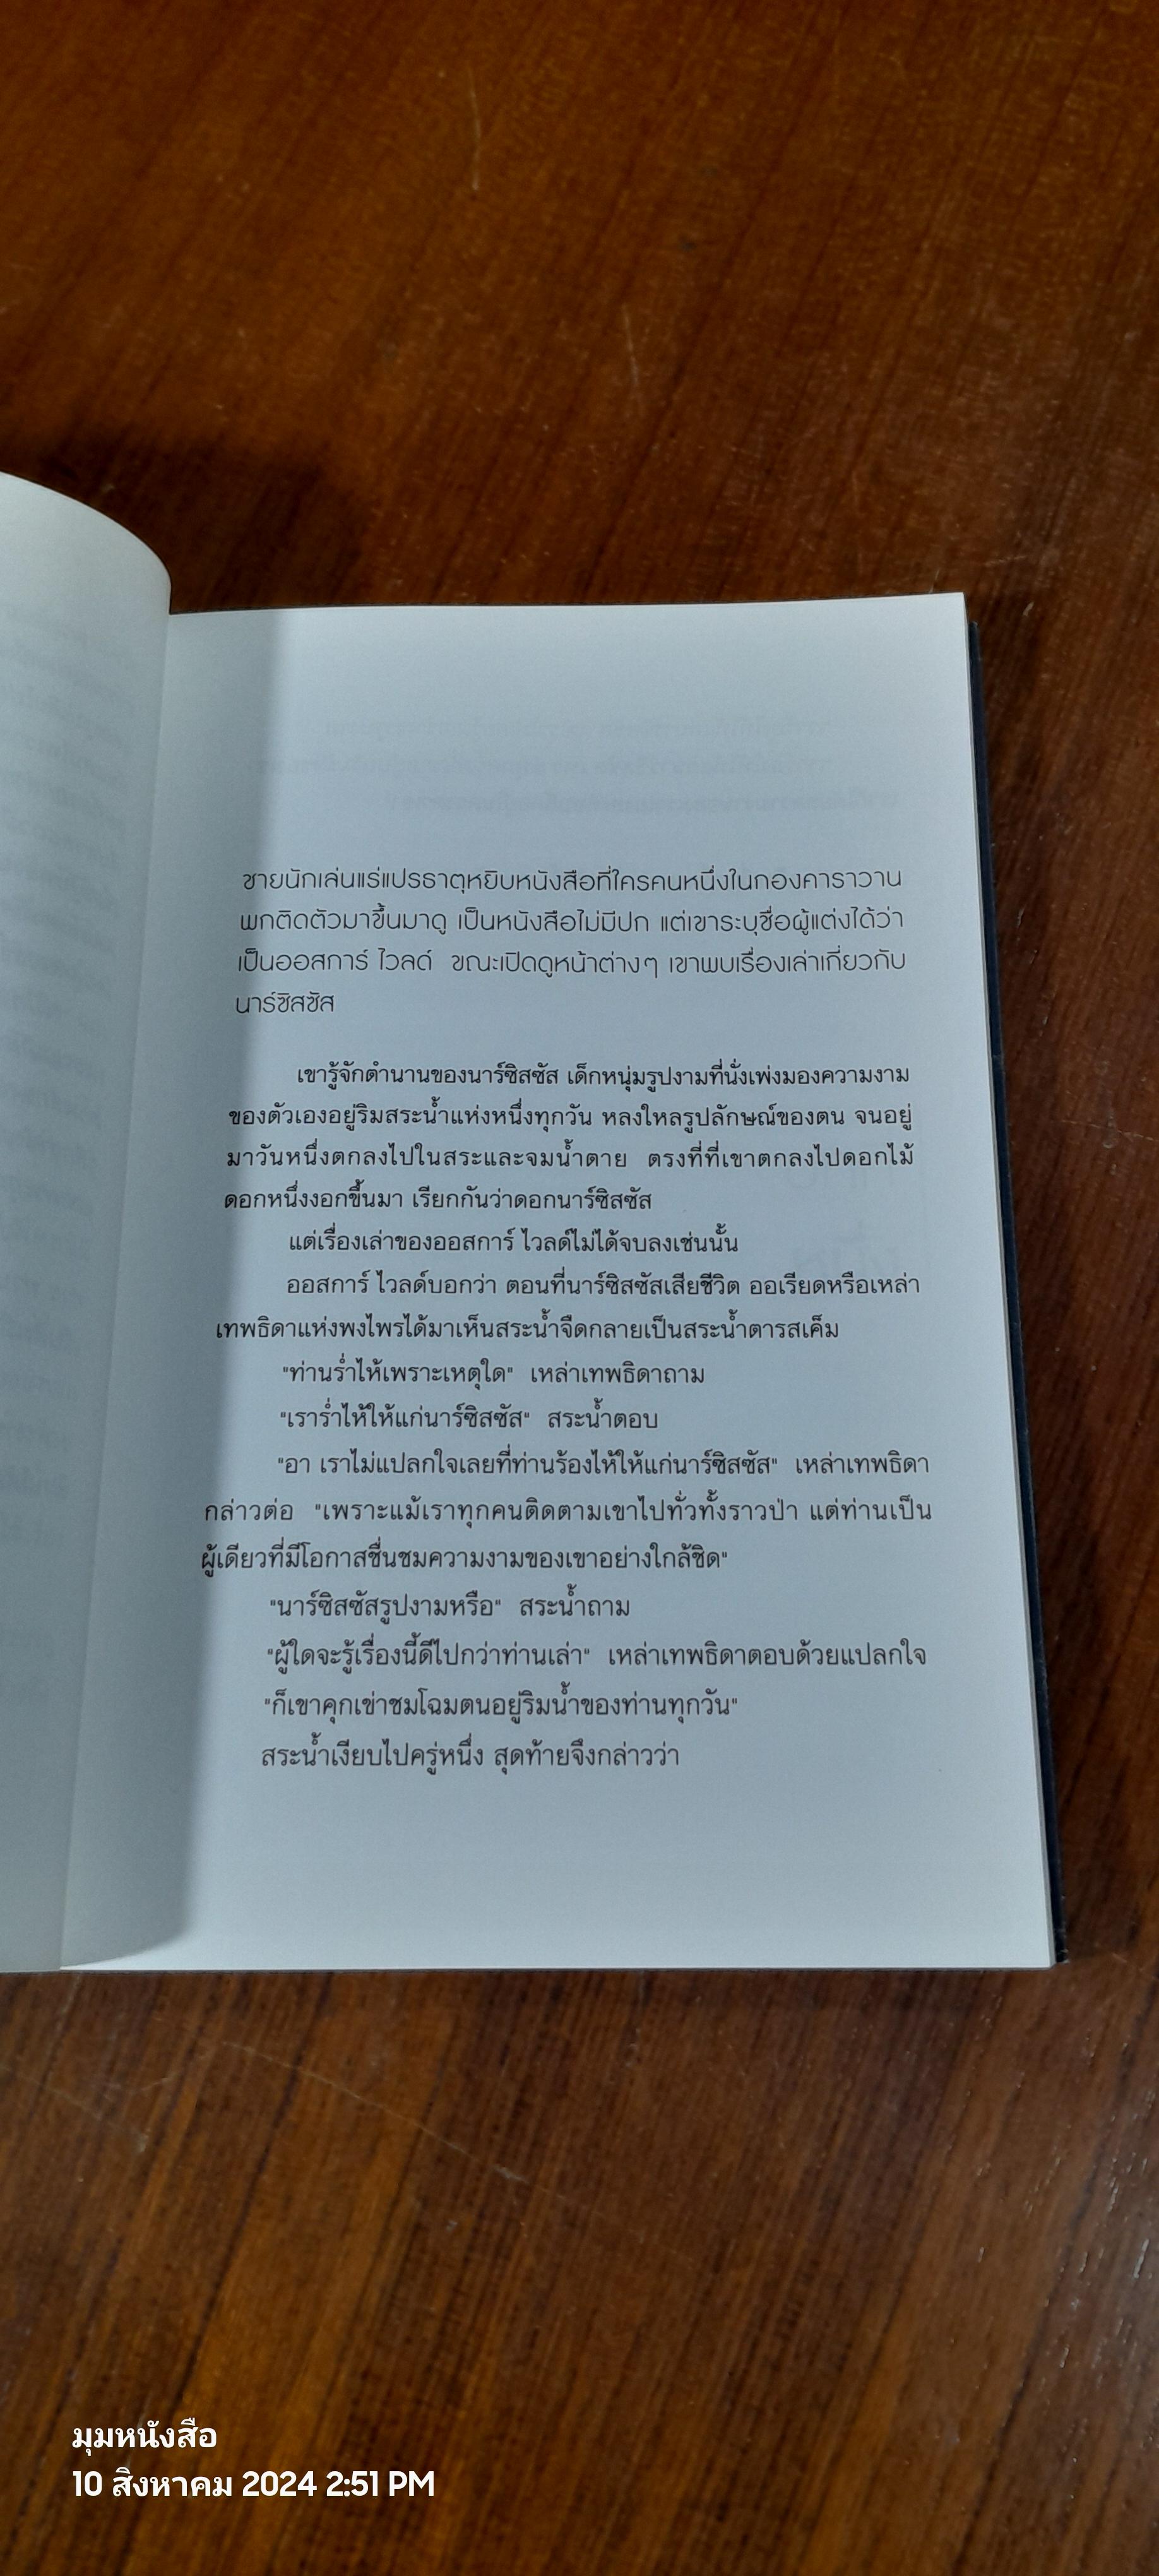 ชายนักเล่นแร่แปรธาตุหยิบหนังสือที่ใครคนหนึ่งในกองคาราวาน
พกติดตัวมาขึ้นมาดู เป็นหนังสือไม่มีปก แต่เขาระบุชื่อผู้แต่งได้ว่า
เป็นออสการ์ ไวลด์ ขณะเปิดดูหน้าต่างๆ เขาพบเรื่องเล่าเกี่ยวกับ
นาร์ซิสซัส
เขารู้จักตำนานของนาร์ซิสซัส เด็กหนุ่มรูปงามที่นั่งเพ่งมองความงาม
ของตัวเองอยู่ริมสระน้ำแห่งหนึ่งทุกวัน หลงใหลรูปลักษณ์ของตน จนอยู่
มาวันหนึ่งตกลงไปในสระและจมน้ำตาย ตรงที่ที่เขาตกลงไปดอกไม้
ดอกหนึ่งงอกขึ้นมา เรียกกันว่าดอกนาร์ซิสซัส
แต่เรื่องเล่าของออสการ์ ไวลด์ไม่ได้จบลงเช่นนั้น
ออสการ์ ไวลด์บอกว่า ตอนที่นาร์ซิสซัสเสียชีวิต ออเรียดหรือเหล่า
เทพธิดาแห่งพงไพรได้มาเห็นสระน้ำจืดกลายเป็นสระน้ำตารสเค็ม
"ท่านร่ำไห้เพราะเหตุใด" เหล่าเทพธิดาถาม
"เราร่ำไห้ให้แก่นาร์ซิสซัส" สระน้ำตอบ
"อา เราไม่แปลกใจเลยที่ท่านร้องไห้ให้แก่นาร์ซิสซัส" เหล่าเทพธิดา
กล่าวต่อ "เพราะแม้เราทุกคนติดตามเขาไปทั่วทั้งราวป่า แต่ท่านเป็น
ผู้เดียวที่มีโอกาสชื่นชมความงามของเขาอย่างใกล้ชิด"
"นาร์ซิสซัสรูปงามหรือ" สระน้ำถาม
"ผู้ใดจะรู้เรื่องนี้ดีไปกว่าท่านเล่า" เหล่าเทพธิดาตอบด้วยแปลกใจ
"ก็เขาคุกเข่าชมโฉมตนอยู่ริมน้ำของท่านทุกวัน"
สระน้ำเงียบไปครู่หนึ่ง สุดท้ายจึงกล่าวว่า
มุมหนังสือ
10 สิงหาคม 2024 2:51 PM